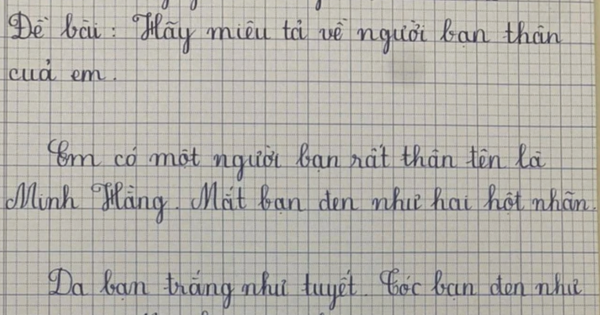 Đề bài: Hãy miêu tả về người bạn thân
cuả em.
Em có một người bạn rất thân tên là
Minh Hằng. Mắt bạn đen như hai hột nhãn.
Da bạn trắng như tuyết. Tóc bạn đen như